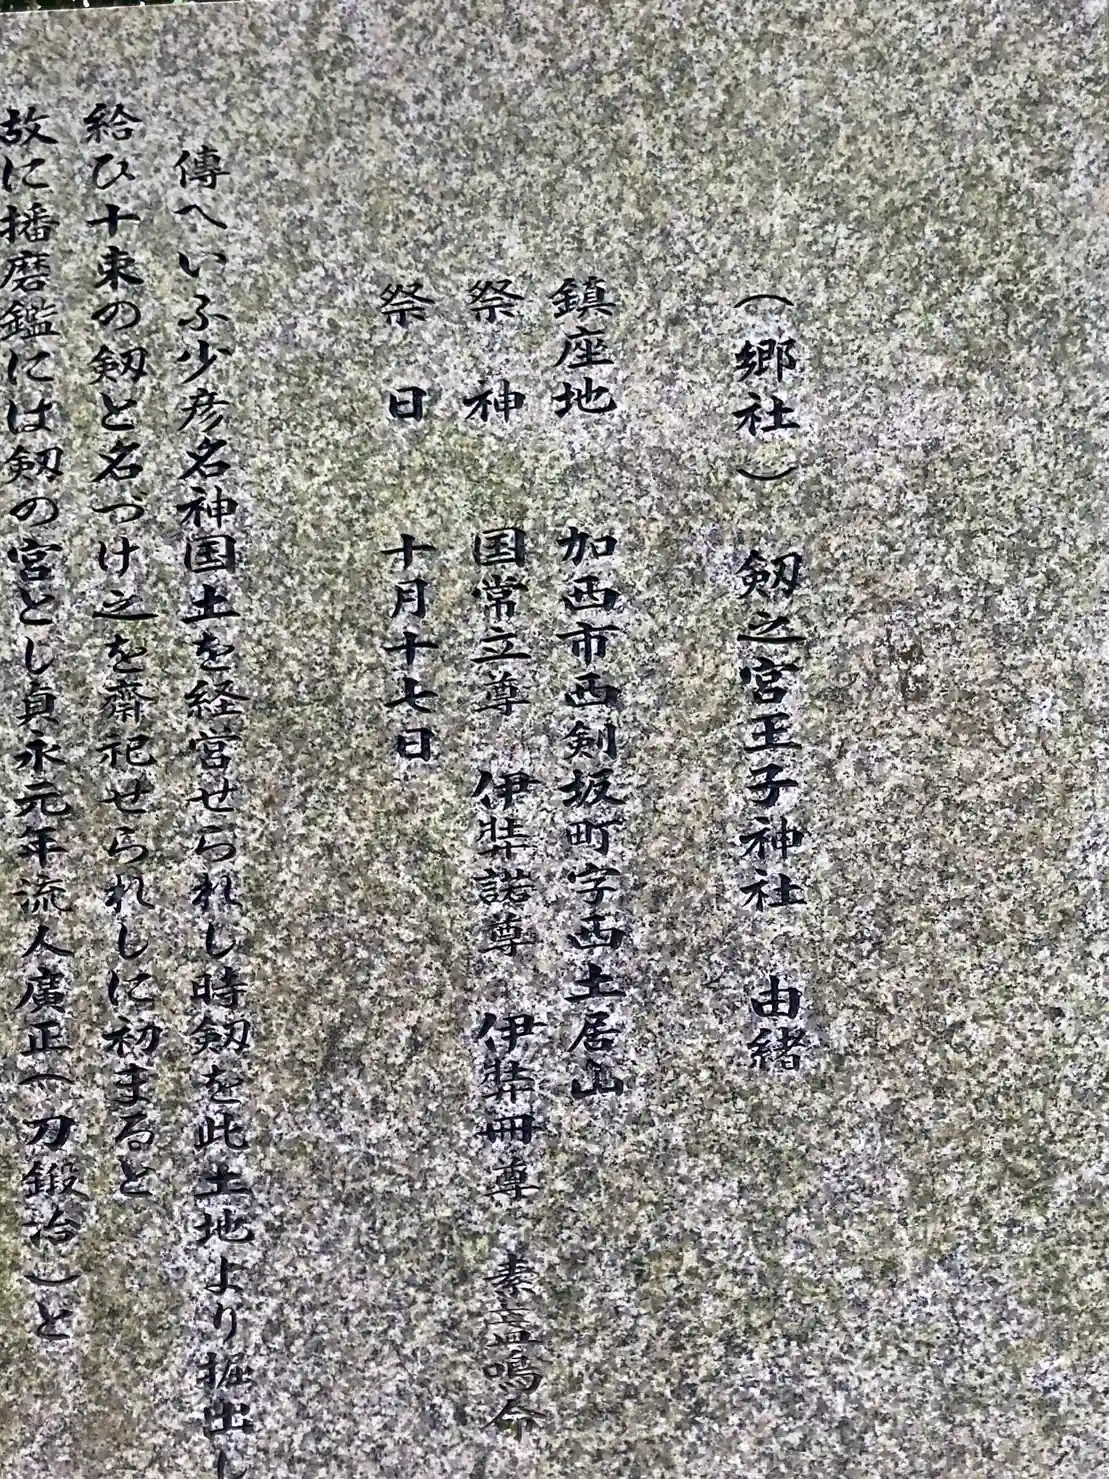 (郷社) 剱之宮王子神社 由緒
鎮座地 加西市西剣坂町字西土居山
祭神 国常立尊 伊弉諾尊 伊弉冊尊 素盞鳴命
祭日 十月十七日
傳へいふ少彦名神国土を経営せられし時剱を此土地より掘出し
給ひ十束の剱と名づけ之を齋祀せられしに初まると
故に播磨鑑には剱の宮とし貞永元年流人廣正(刀鍛冶)と